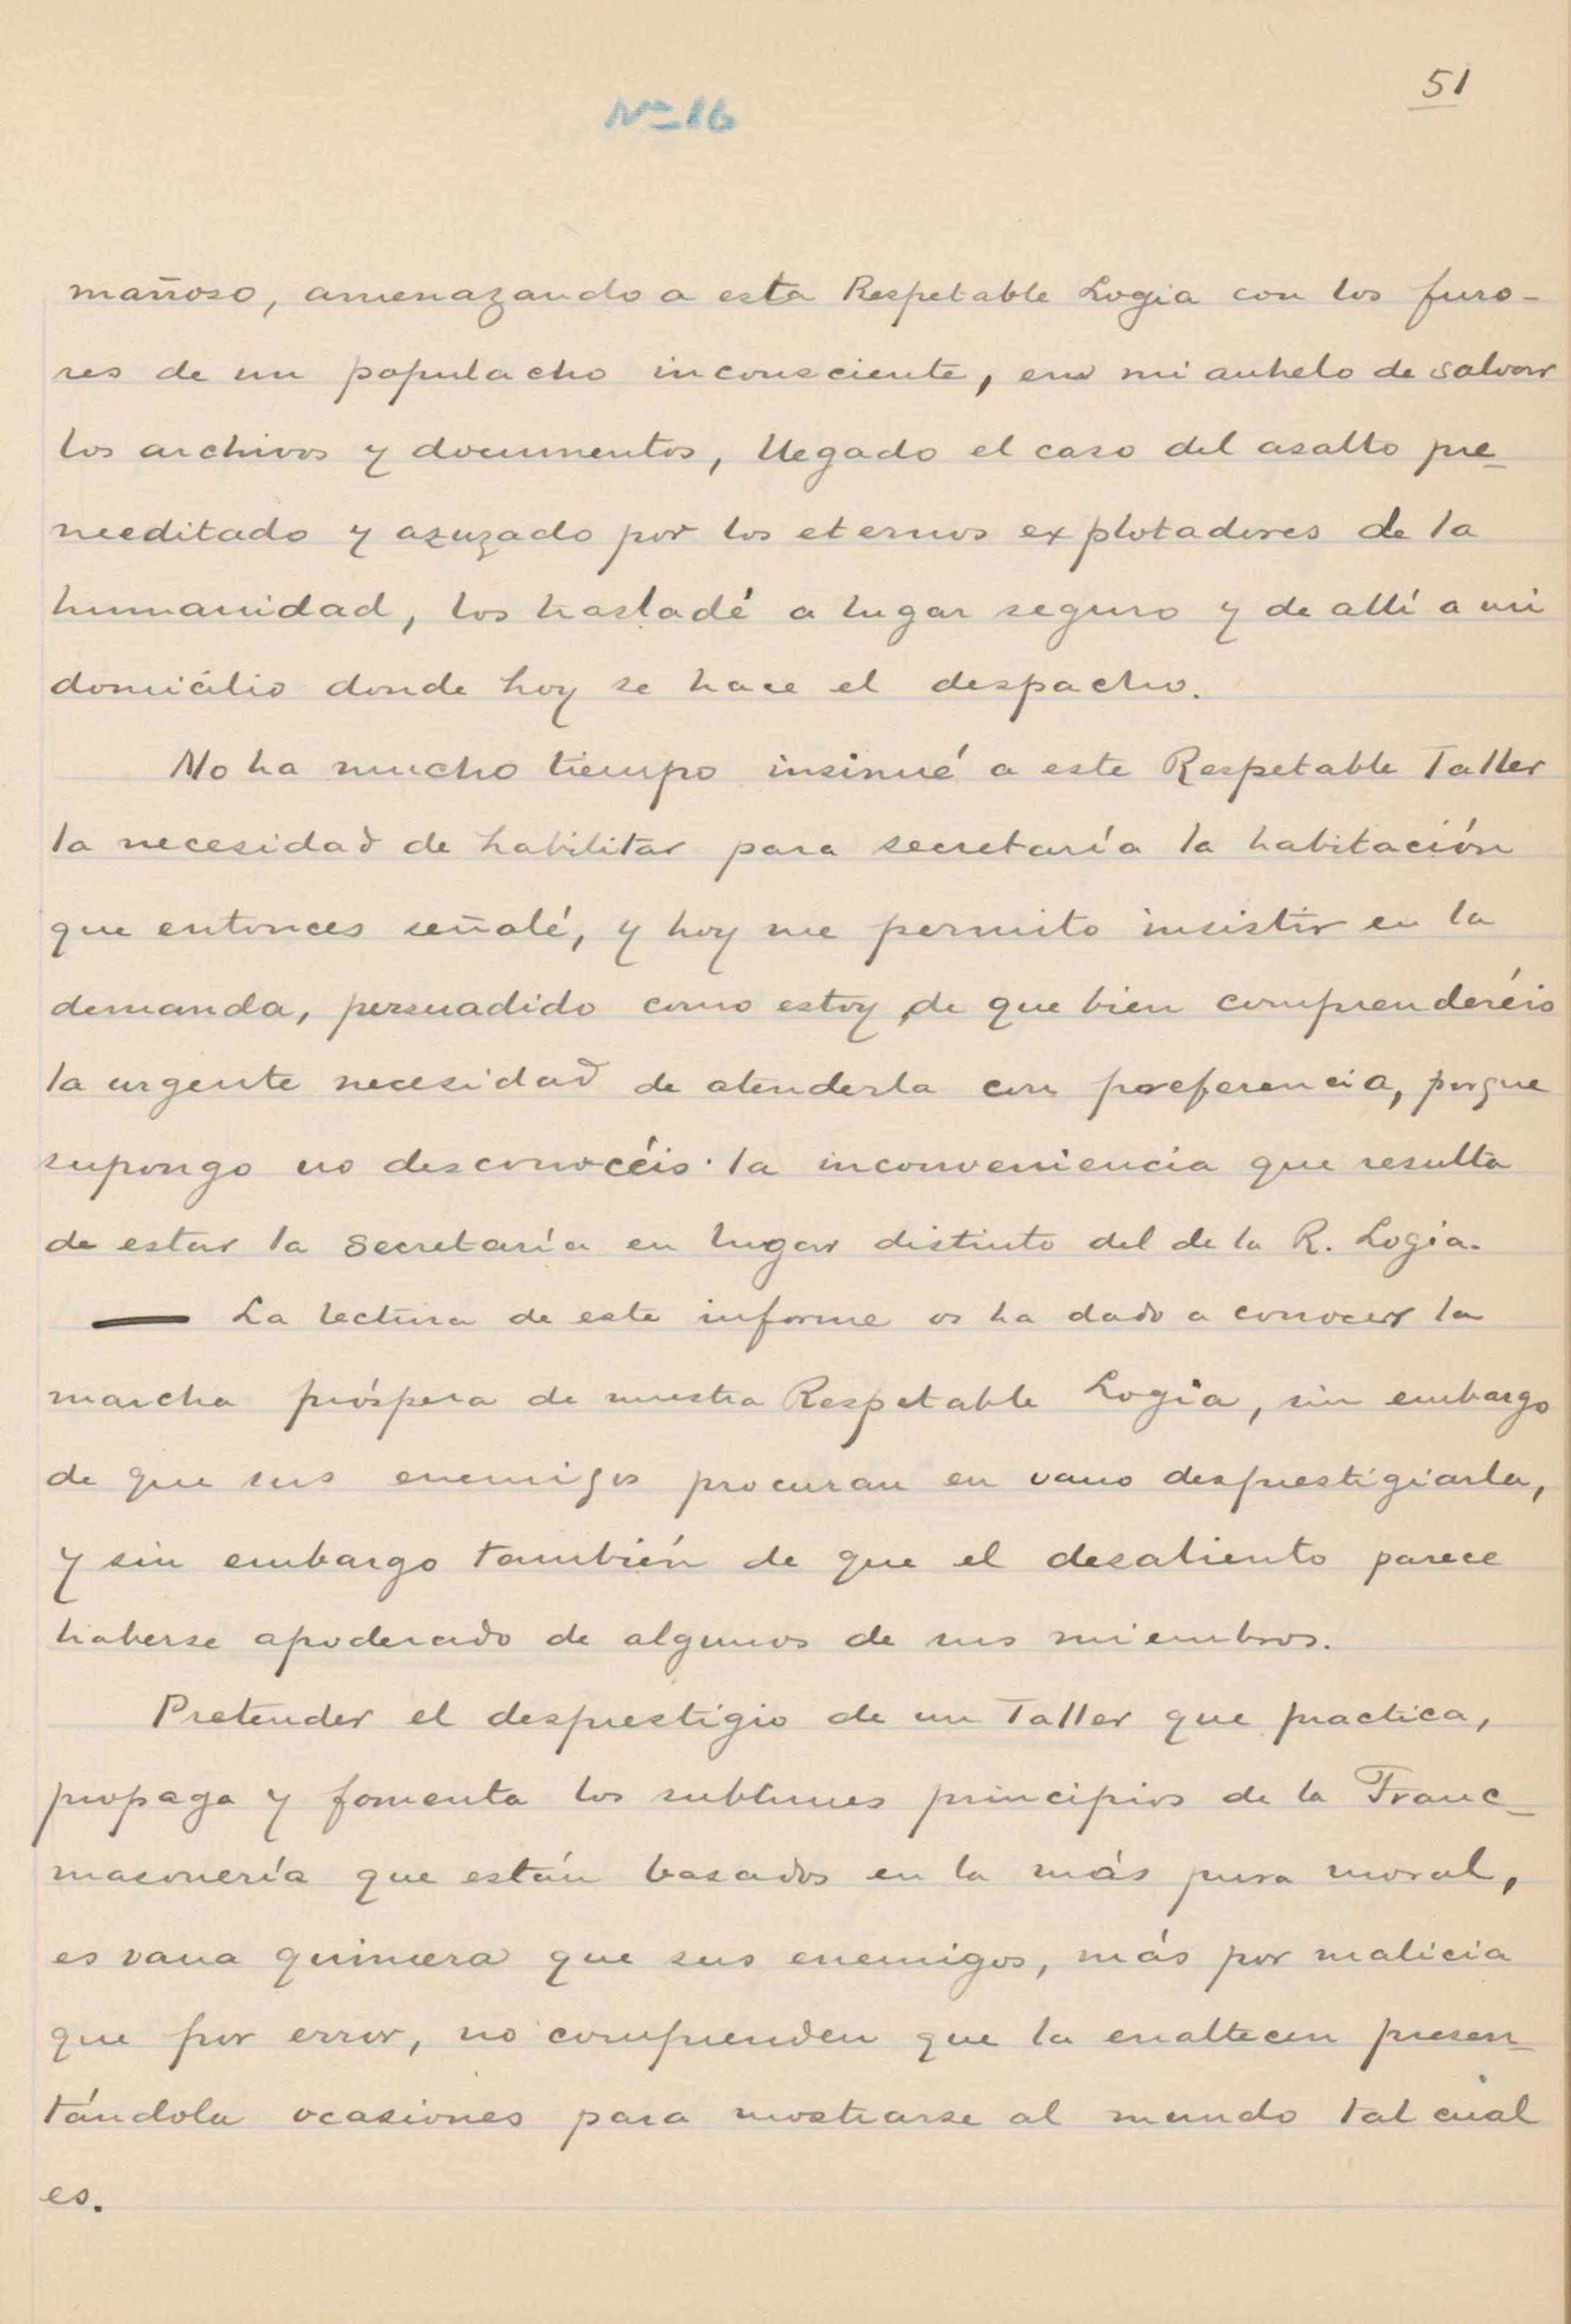 51
Nº 16
mañoso, amenazando a esta Respetable Logia con los furo-
res de un populacho inconsciente, en mi anhelo de salvar
los archivos y documentos, llegado el caso del asalto pre-
meditado y azuzado por los eternos explotadores de la
humanidad, los trasladé a lugar seguro y de allí a mi
domicilio donde hoy se hace el despacho.
No ha mucho tiempo insinué a este Respetable Taller
la necesidad de habilitar para secretaría la habitación
que entonces señalé, y hoy me permito insistir en la
demanda, persuadido como estoy de que bien comprenderéis
la urgente necesidad de atenderla con preferencia, porque
supongo no desconocéis la inconveniencia que resulta
de estar la Secretaría en lugar distinto del de la R. Logia.
— La lectura de este informe os ha dado a conocer la
marcha próspera de nuestra Respetable Logia, sin embargo
de que sus enemigos procuran en vano desprestigiarla,
y sin embargo también de que el desaliento parece
haberse apoderado de algunos de sus miembros.
Pretender el desprestigio de un Taller que practica,
propaga y fomenta los sublimes principios de la Franc-
masonería que están basados en la más pura moral,
es vana quimera que sus enemigos, más por malicia
que por error, no comprenden que la enaltecen presen-
tándola ocasiones para mostrarse al mundo tal cual
es.